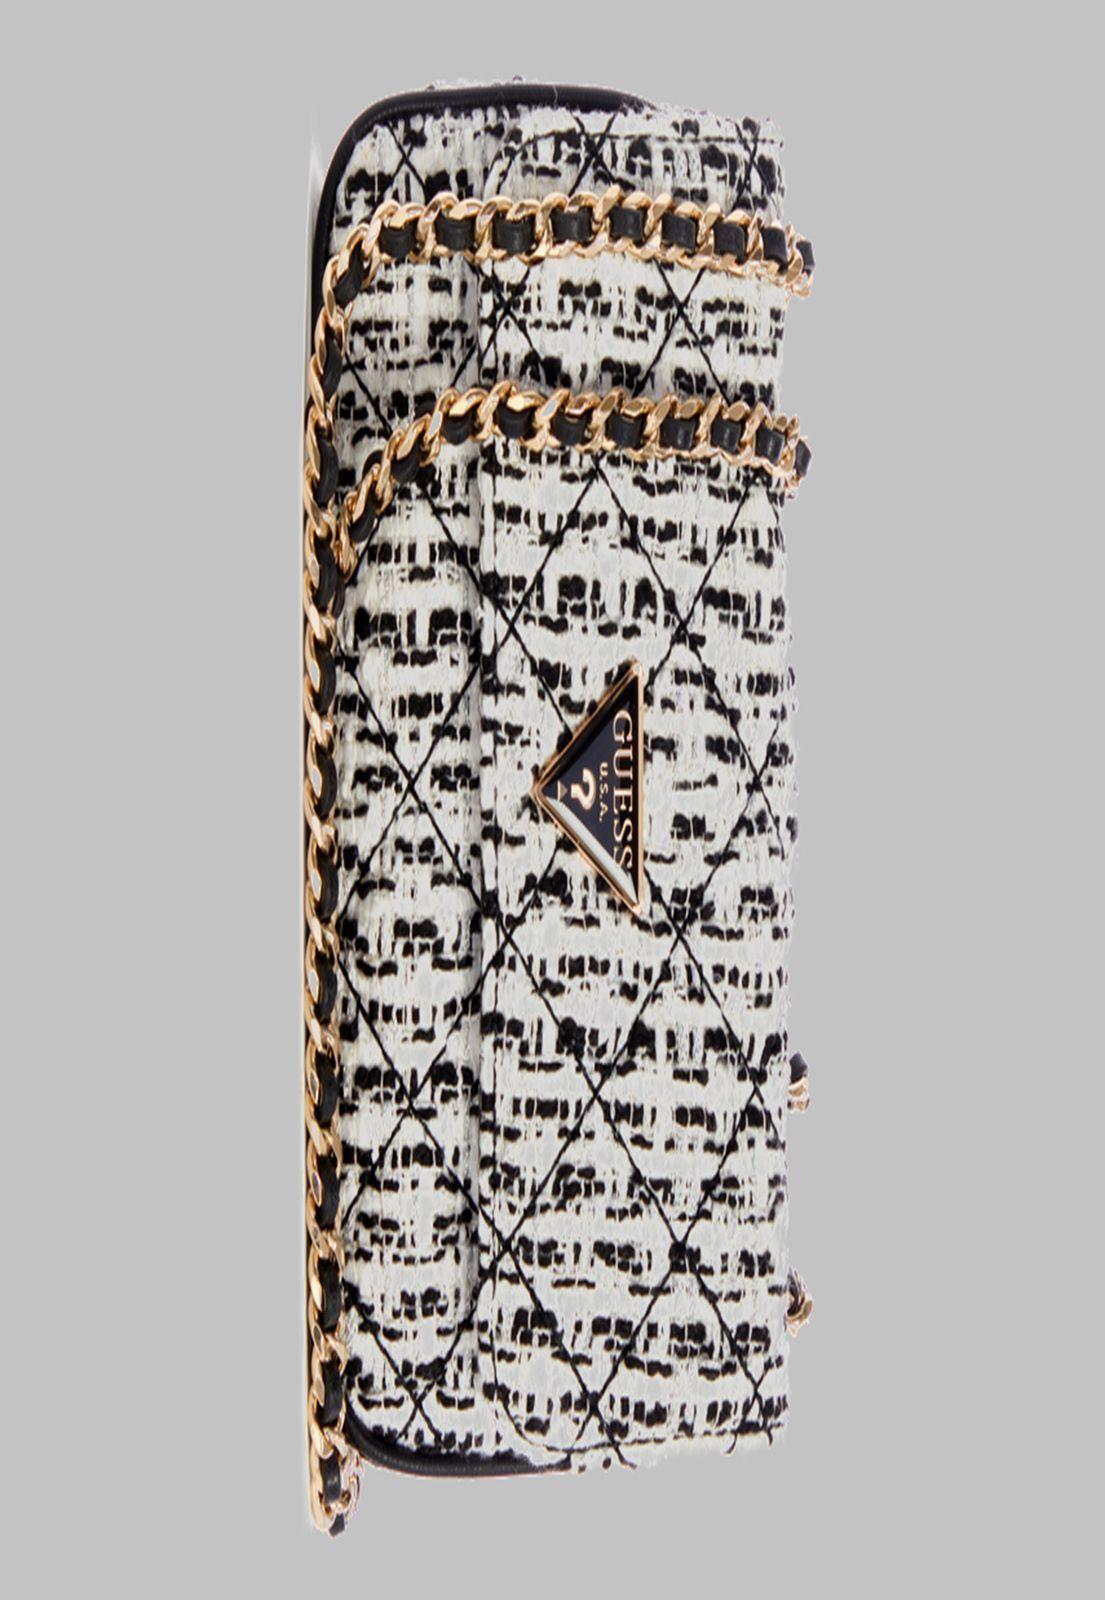 GUESS
U.S.A.
?